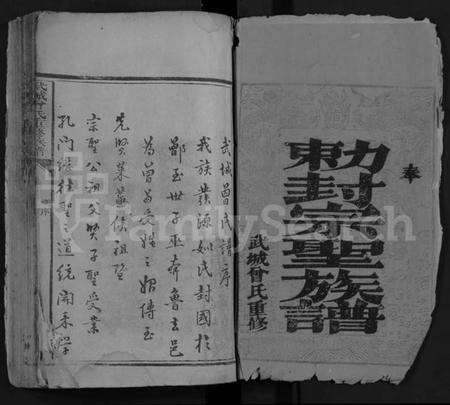 奉
勅封宗聖族譜
武城曾氏重修
武城曾氏譜序
我族發源如氏封國於
鄫至世子巫奔魯去邑
為曾曾受姓之始傳至
先賢萊蕪侯祖暨
宗聖公祖父賢子聖受業
孔門繼往聖之道統開來學
FamilySearch